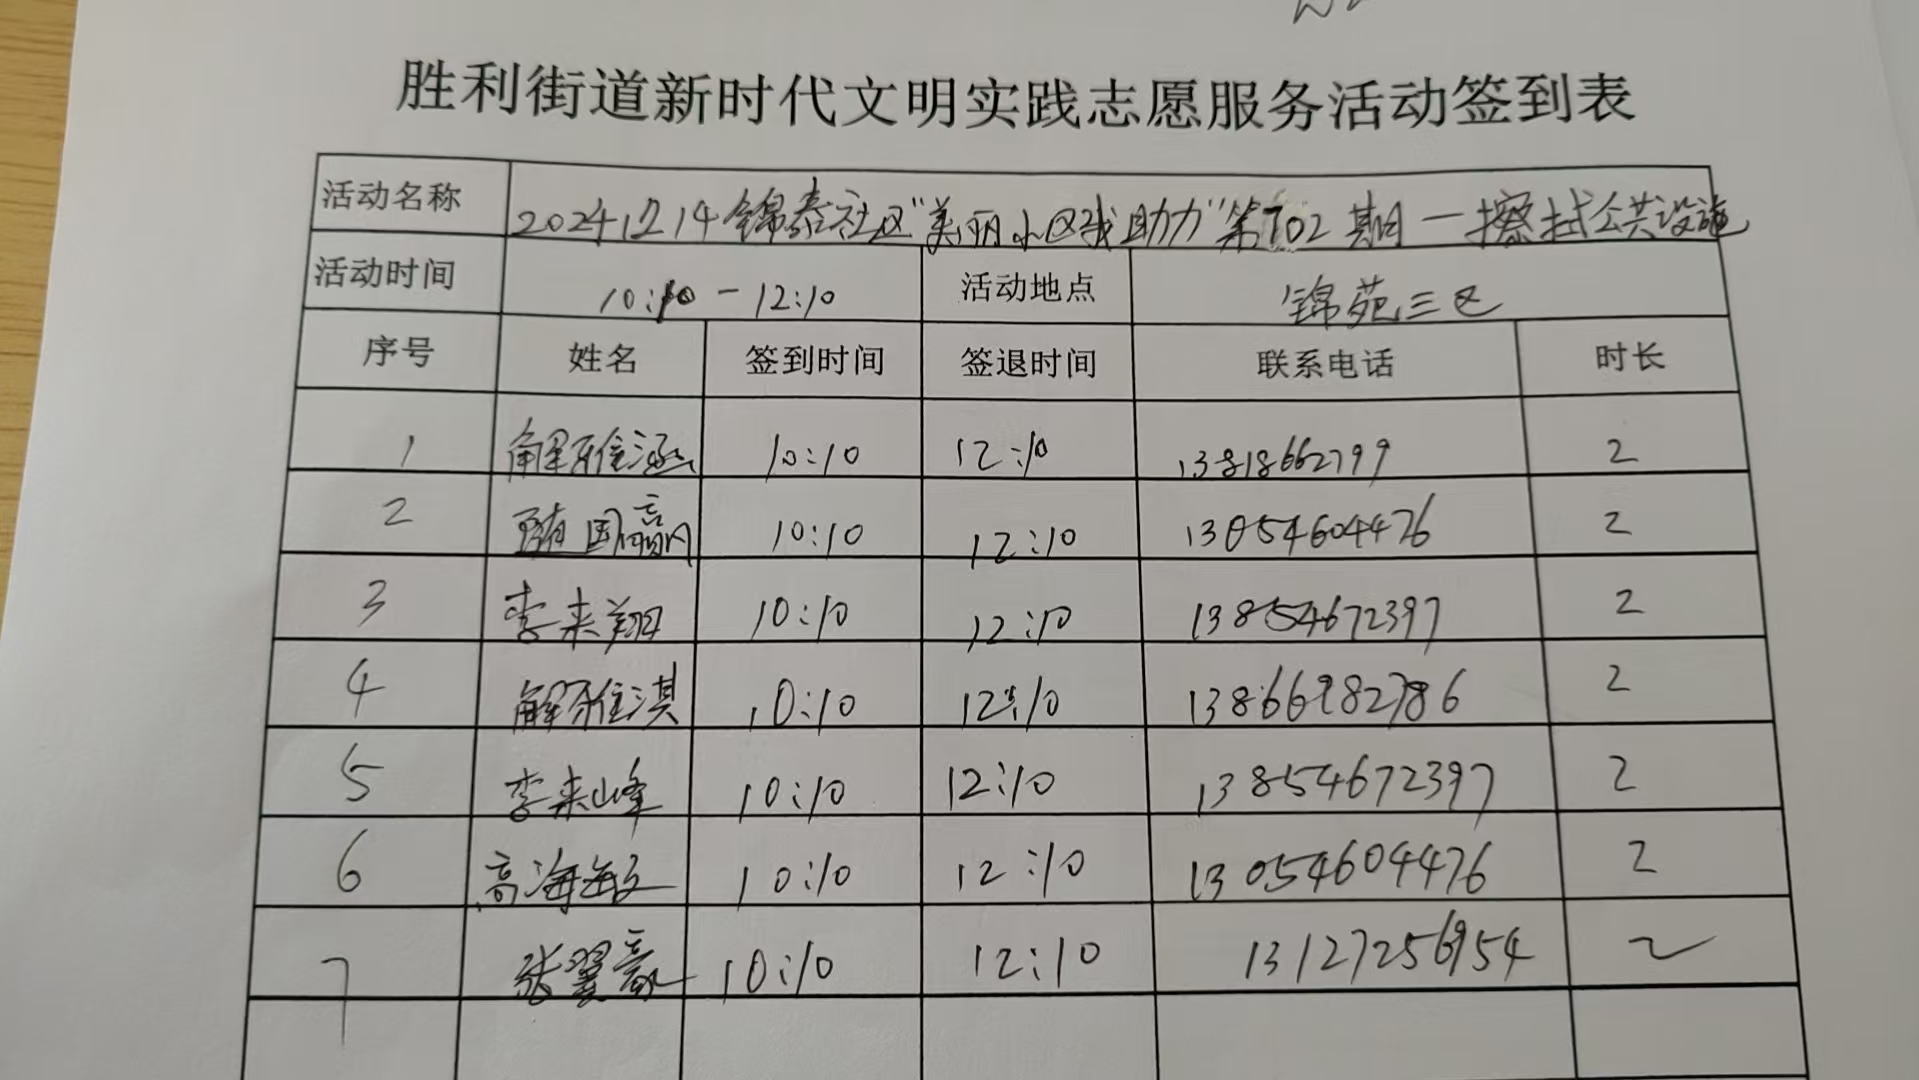 胜利街道新时代文明实践志愿服务活动签到表
活动名称 20241214锦泰社区“美丽小区我助力”第702期一擦拭公共设施
活动时间 10:10－12:10 活动地点 锦苑三区
序号 姓名 签到时间 签退时间 联系电话 时长
1 解雅涵 10:10 12:10 13818662799 2
2 国赢 10:10 12:10 13054604476 2
3 李来翔 10:10 12:10 13854672397 2
4 解雅淇 10:10 12:10 13866982786 2
5 李来峰 10:10 12:10 13854672397 2
6 高海 10:10 12:10 13054604476 2
7 张翼 10:10 12:10 13127256954 2